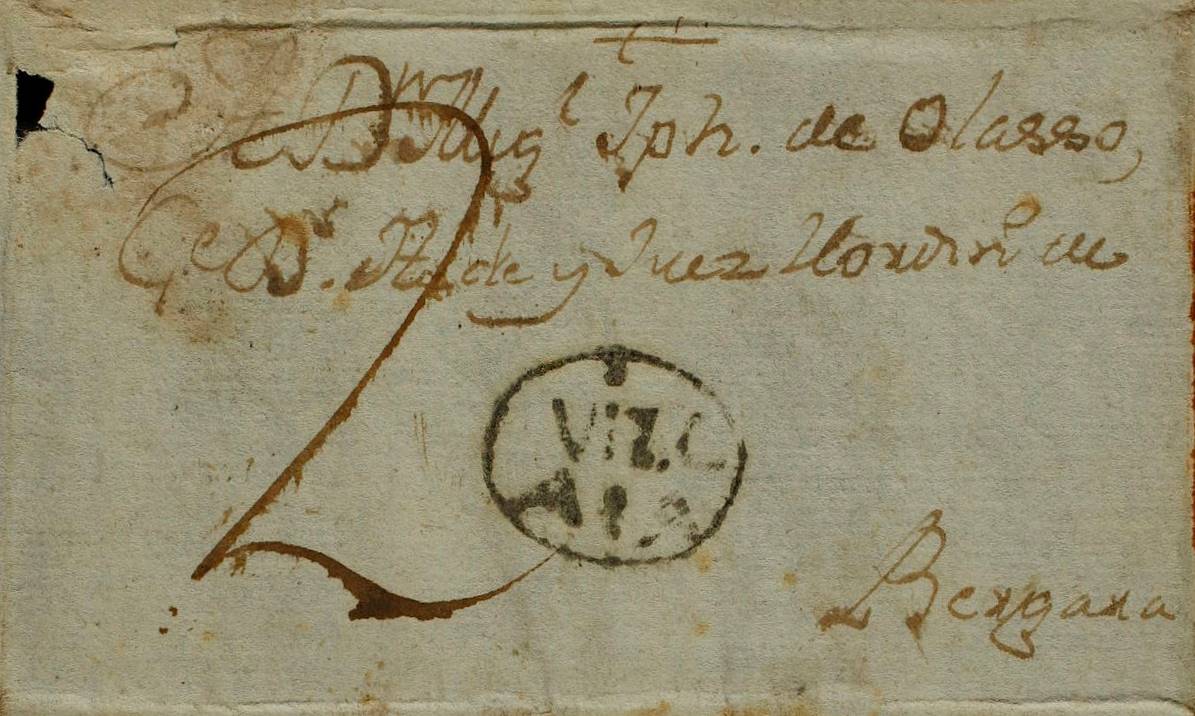 A Dn Migl Jph. de Olasso,
Gde Ds. Alcde y Juez Hordinro de
2
VIZ.C
Bergara